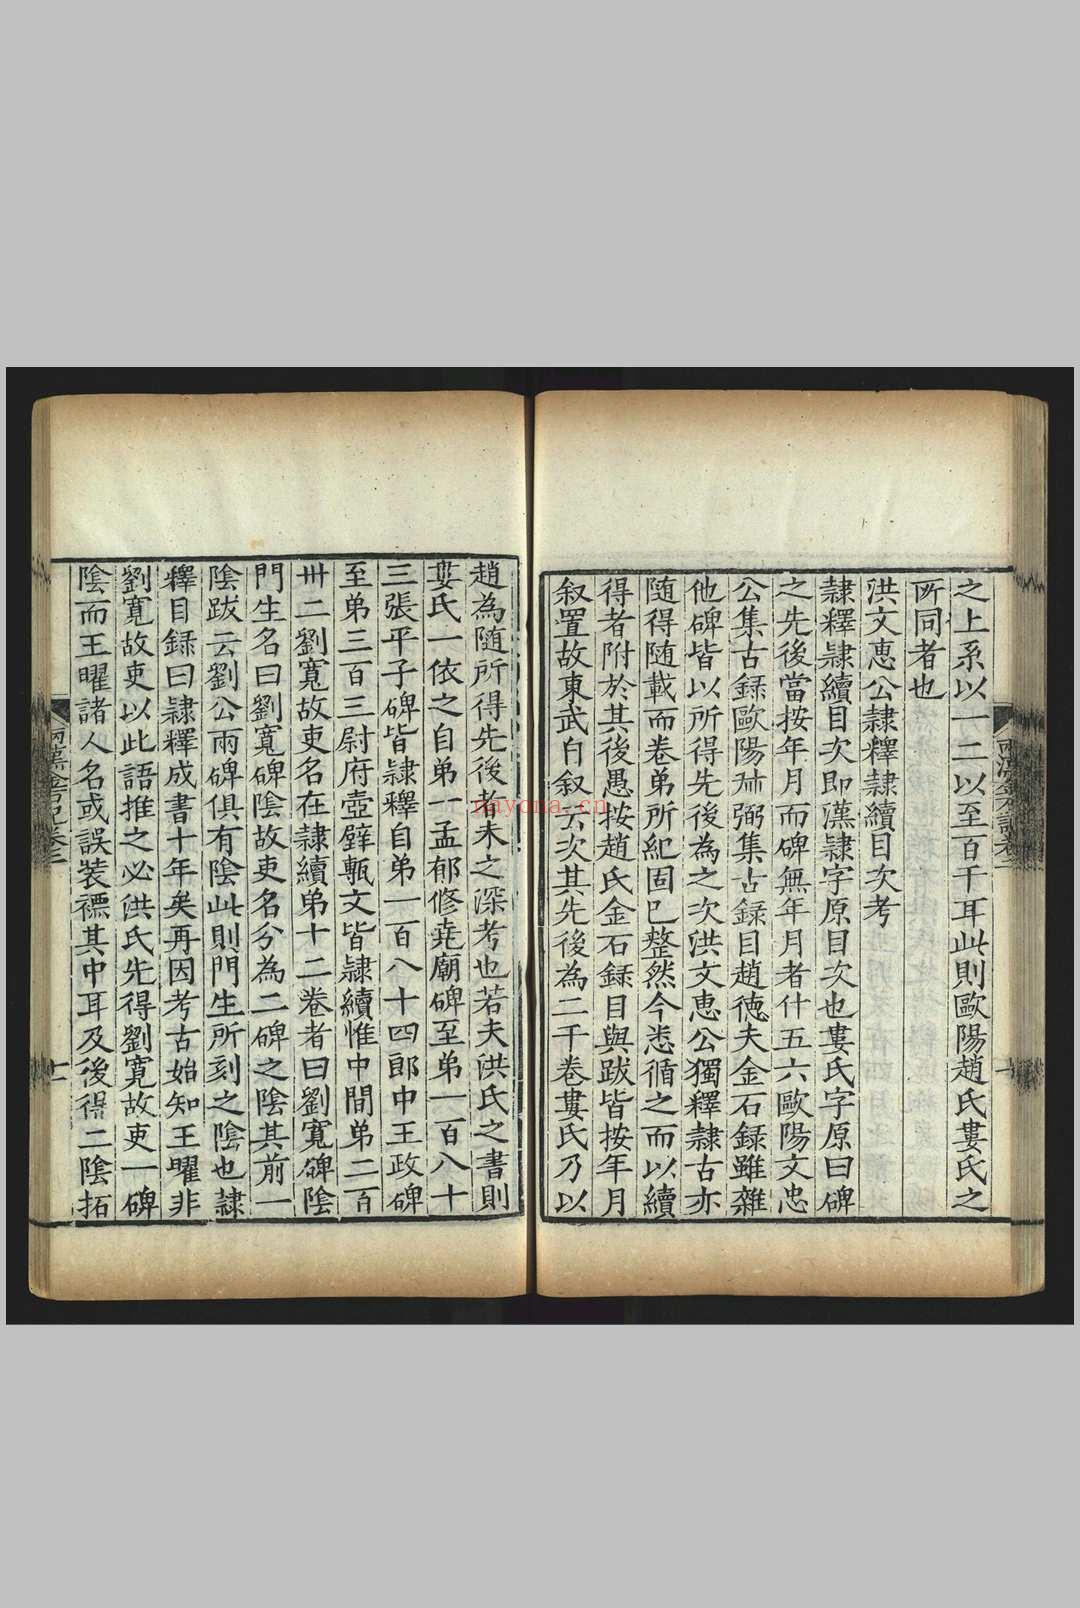 之上系以一二以至百千耳此則歐陽趙氏婁氏之
所同者也
洪文惠公隸釋隸續目次考
隸釋隸續目次即漢隸字原目次也婁氏字原曰碑
之先後當按年月而碑無年月者什五六歐陽文忠
公集古録歐陽叔弼集古録目趙德夫金石録雖雜
他碑皆以所得先後為之次洪文惠公獨釋隸古亦
隨得隨載而卷弟所紀固已整然今悉循之而以續
得者附於其後愚按趙氏金石録目與跋皆按年月
叙置故東武自叙云次其先後為二千卷婁氏乃以
兩漢金石記卷二
十
趙為隨所得先後者未之深考也若夫洪氏之書則
婁氏一依之自弟一孟郁修堯廟碑至弟一百八十
三張平子碑皆隸釋自弟一百八十四郎中王政碑
至弟三百三尉府壺壁甎文皆隸續惟中間弟二百
卅二劉寬故吏名在隸續弟十二卷者曰劉寬碑陰
門生名曰劉寬碑陰故吏名分為二碑之陰其前一
陰跋云劉公兩碑俱有陰此則門生所刻之陰也隸
釋目録曰隸釋成書十年矣再因考古始知王曜非
劉寬故吏以此語推之必洪氏先得劉寬故吏一碑
陰而王曜諸人名或誤裝褾其中耳及後得二陰拓
兩漢金石記卷二
十一
nayona.cn